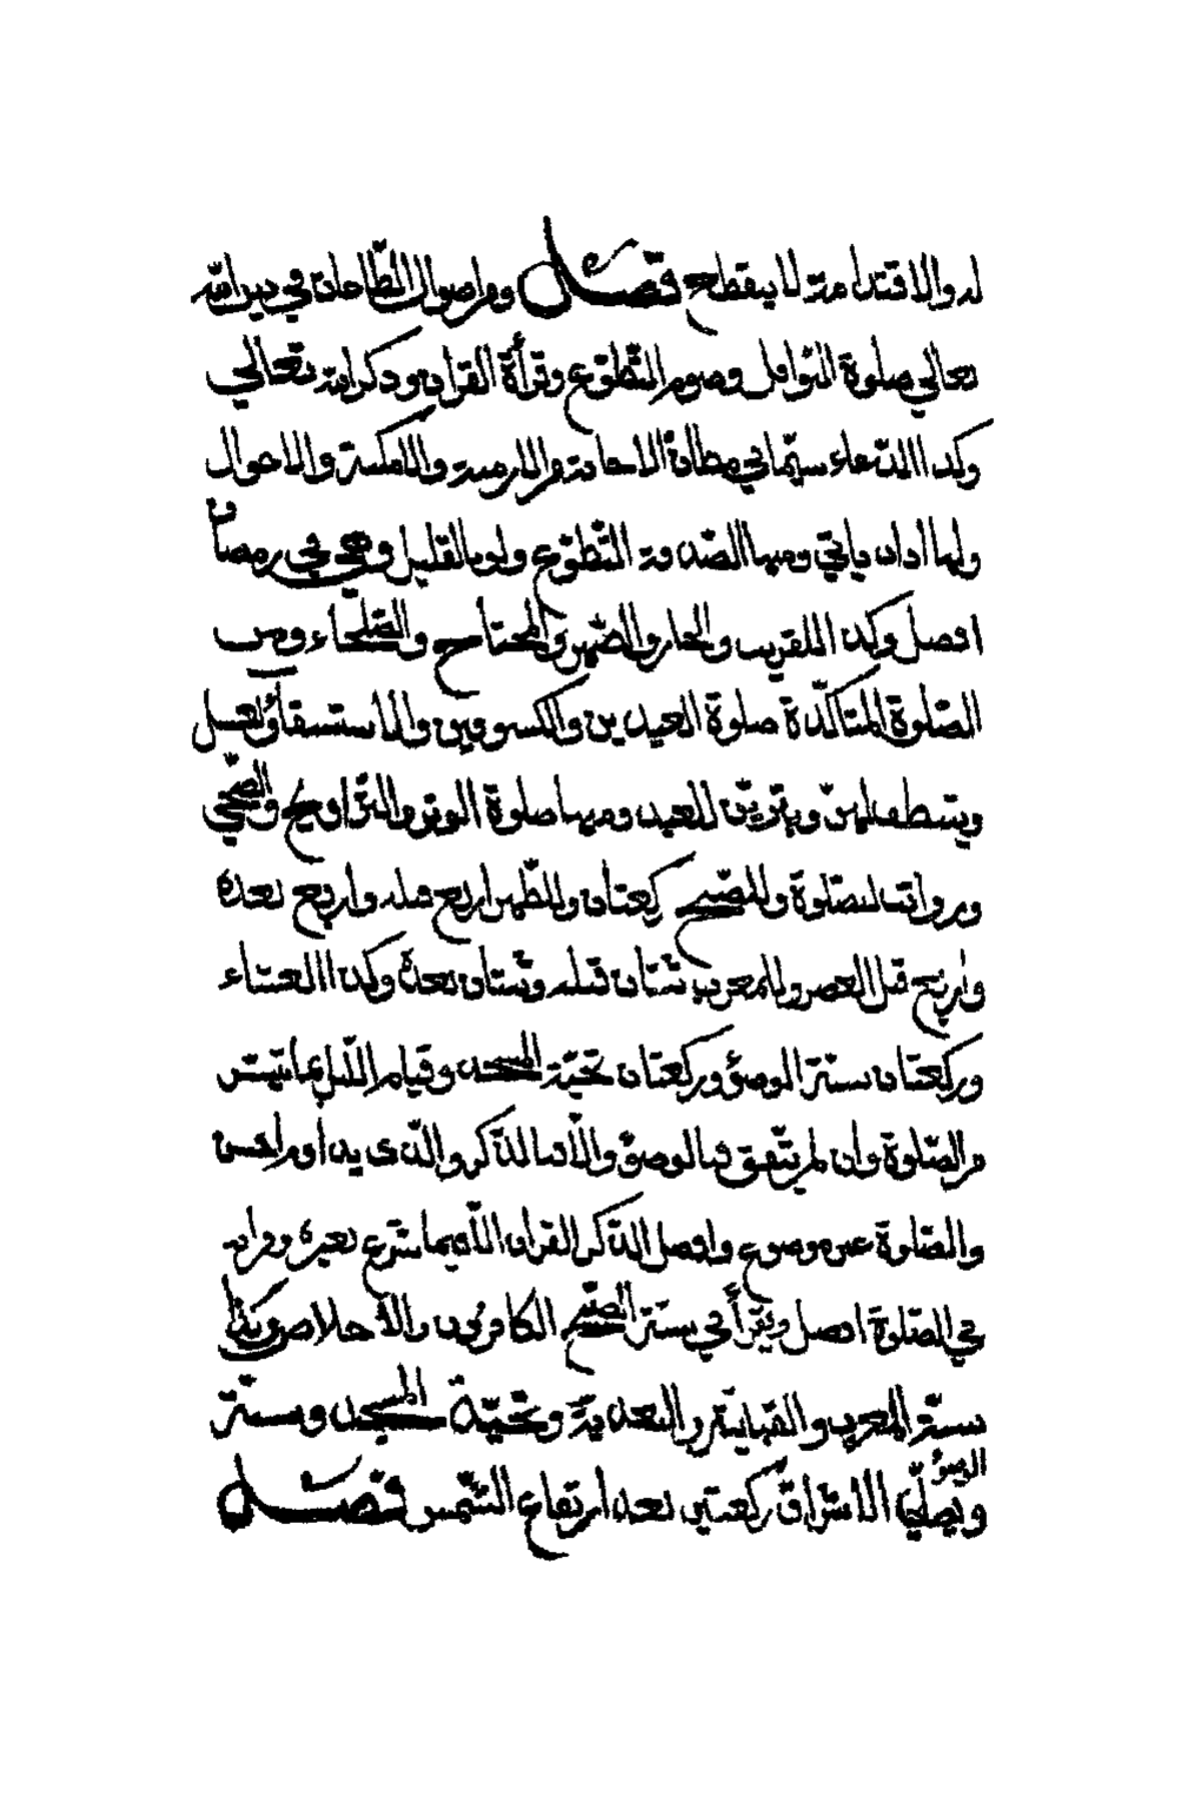 له والاقتدا منه لا ينقطع فصل ومر اصول الطاعات في دين الله
تعالي صلوة النوافل وصوم التطوع وقرأة القرآن وذكر الله تعالي
وكذا الدعاء سيّما في مظانّ الاجابة مر الازمنة والامكنة والاحوال
ولها آداب ياتي ومنها الصدقة التطوع ولو بالقليل وهي في رمضان
افضل وكذا للقريب والجار والصهر والمحتاج والصلحاء ومن
الصّلوة المتاكدة صلوة العيدين والكسوفين والاستسقاء ويغسل
ويتنظف لهن ويتزيّن للعيد ومنها صلوة الوتر والتراويح والضحي
ورواتب الصّلوة وللصبح ركعتان وللظهر اربع قبله واربع بعده
واربع قبل العصر وللمغرب ثنتان قبله وثنتان بعده وكذا العشاء
وركعتان سنة الوضوء وركعتان تحيّة المسجد وقيام اللّيل بما تيسر
مر الصّلوة وان لم يتّفق فبالوضوء والّا فبالذّكر والّذى يداوم احسن
والصّلوة خير موضوع وافضل الذّكر القران الّا فيما شرع بغيره وقرانه
في الصّلوة افضل ويقرأ في سنة الصّبح الكافرون والاخلاص وكذا
سنة المغرب والقبلية والبعدية وتحيّة المسجد وسنة
الوضوء
ويصلّي الاشراق ركعتين بعد ارتفاع الشّمس فصل